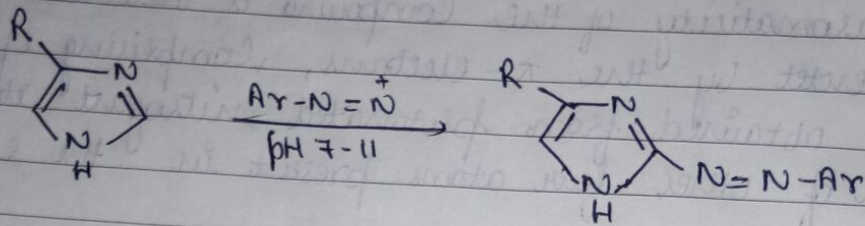 R
N
N
H
Ar-N=N⁺
pH 7-11
R
N
N
H
N=N-Ar